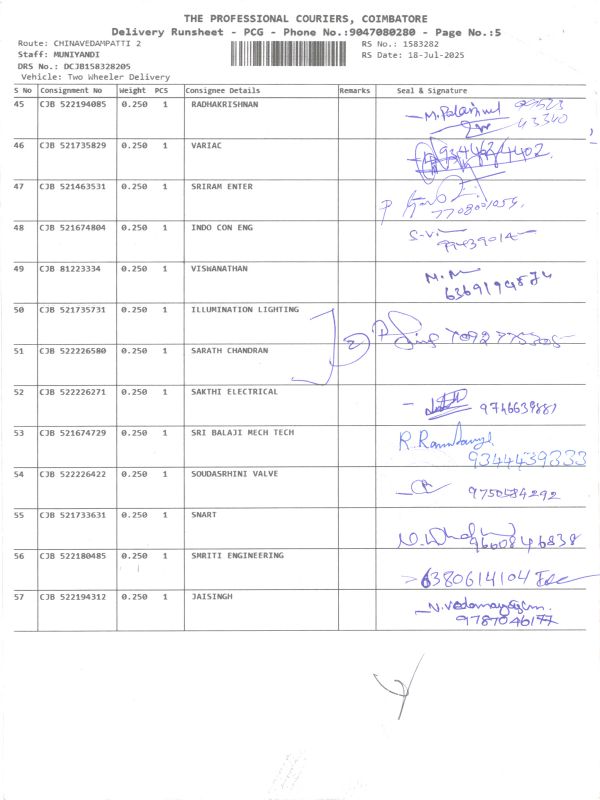 THE PROFESSIONAL COURIERS, COIMBATORE
Delivery Runsheet - PCG - Phone No.:9047080280 - Page No.:5
Route: CHINAVEDAMPATTI 2
RS No.: 1583282
Staff: MUNIYANDI
RS Date: 18-Jul-2025
DRS No.: DCJB158328205
Vehicle: Two Wheeler Delivery
S No Consignment No Weight PCS Consignee Details Remarks Seal & Signature
45 CJB 522194085 0.250 1 RADHAKRISHNAN
43340
46 CJB 521735829 0.250 1 VARIAC
47 CJB 521463531 0.250 1 SRIRAM ENTER
48 CJB 521674804 0.250 1 INDO CON ENG
S-Vi
49 CJB 81223334 0.250 1 VISWANATHAN
50 CJB 521735731 0.250 1 ILLUMINATION LIGHTING
2
51 CJB 522226580 0.250 1 SARATH CHANDRAN
52 CJB 522226271 0.250 1 SAKTHI ELECTRICAL
9746639881
53 CJB 521674729 0.250 1 SRI BALAJI MECH TECH
9344439333
54 CJB 522226422 0.250 1 SOUDASRHINI VALVE
9750584292
55 CJB 521733631 0.250 1 SNART
9600846838
56 CJB 522180485 0.250 1 SMRITI ENGINEERING
6380614104
57 CJB 522194312 0.250 1 JAISINGH
N.Vedamayagam.
9787046177